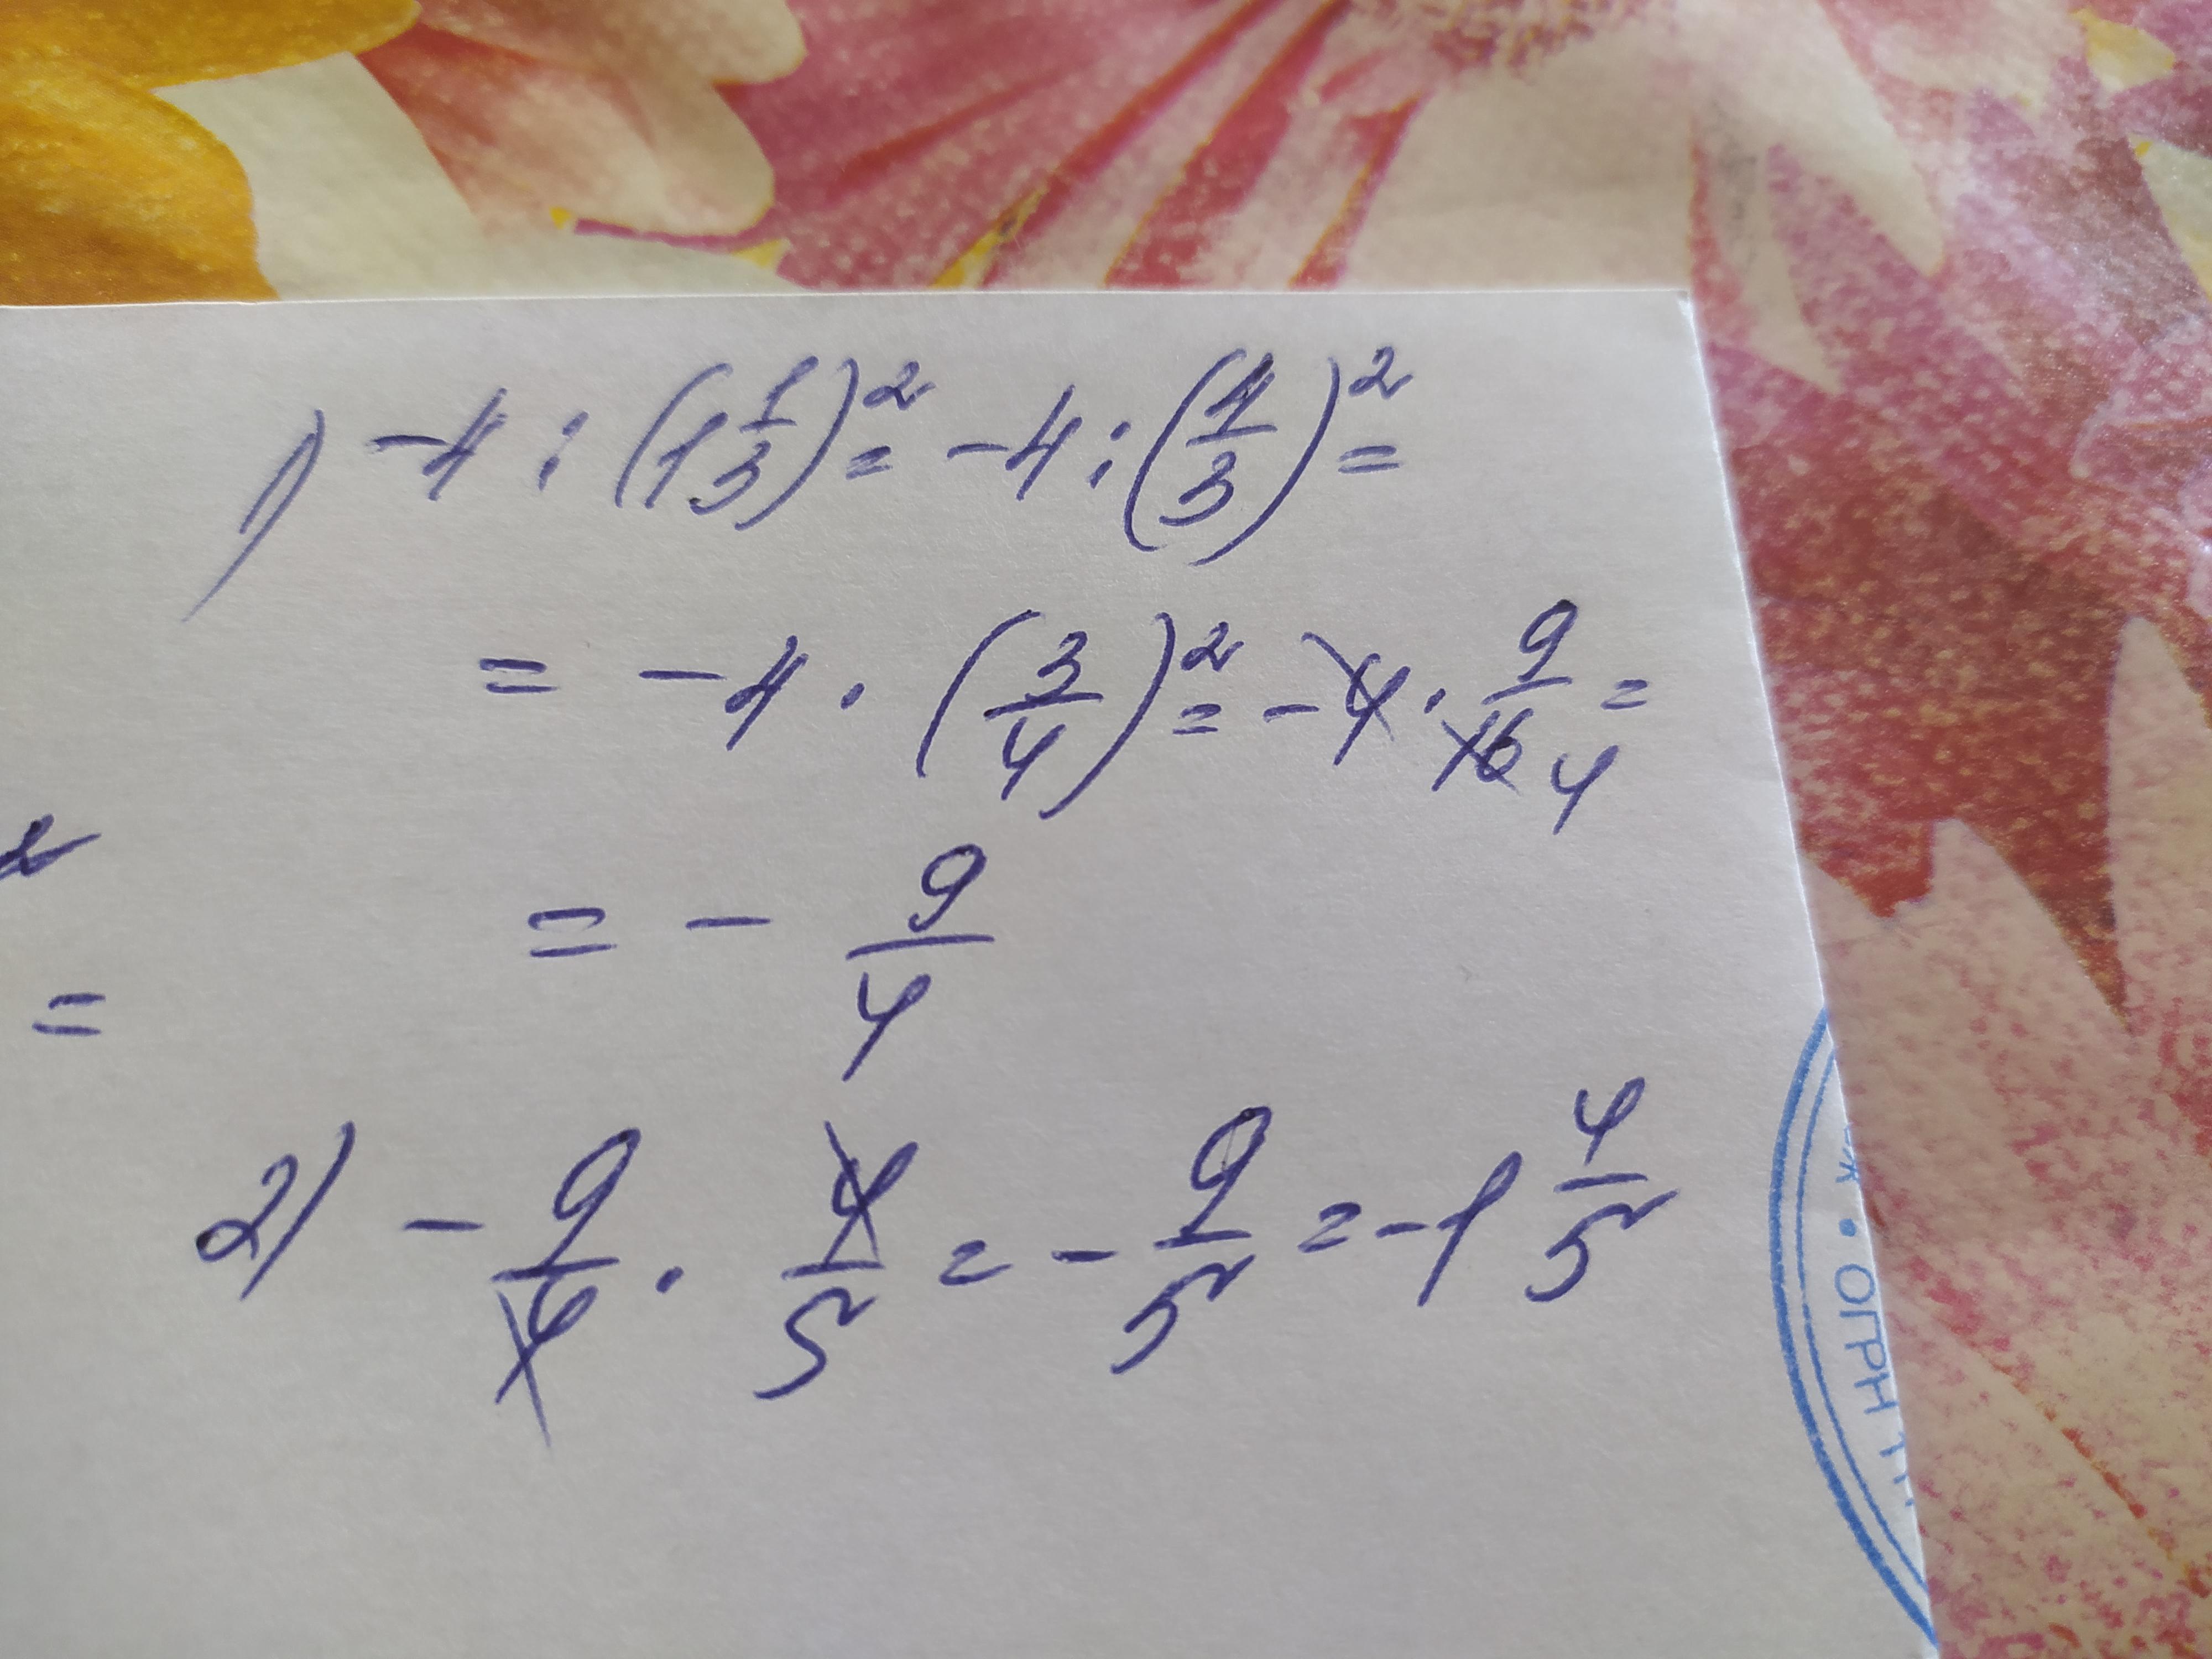 1) -4 : (1 1/3)² = -4 : (4/3)² =
= -4 · (3/4)² = -4 · 9/16 4 =
= - 9/4
=
2) - 9/4 · 4/5 = - 9/5 = -1 4/5
• ОГРН 1